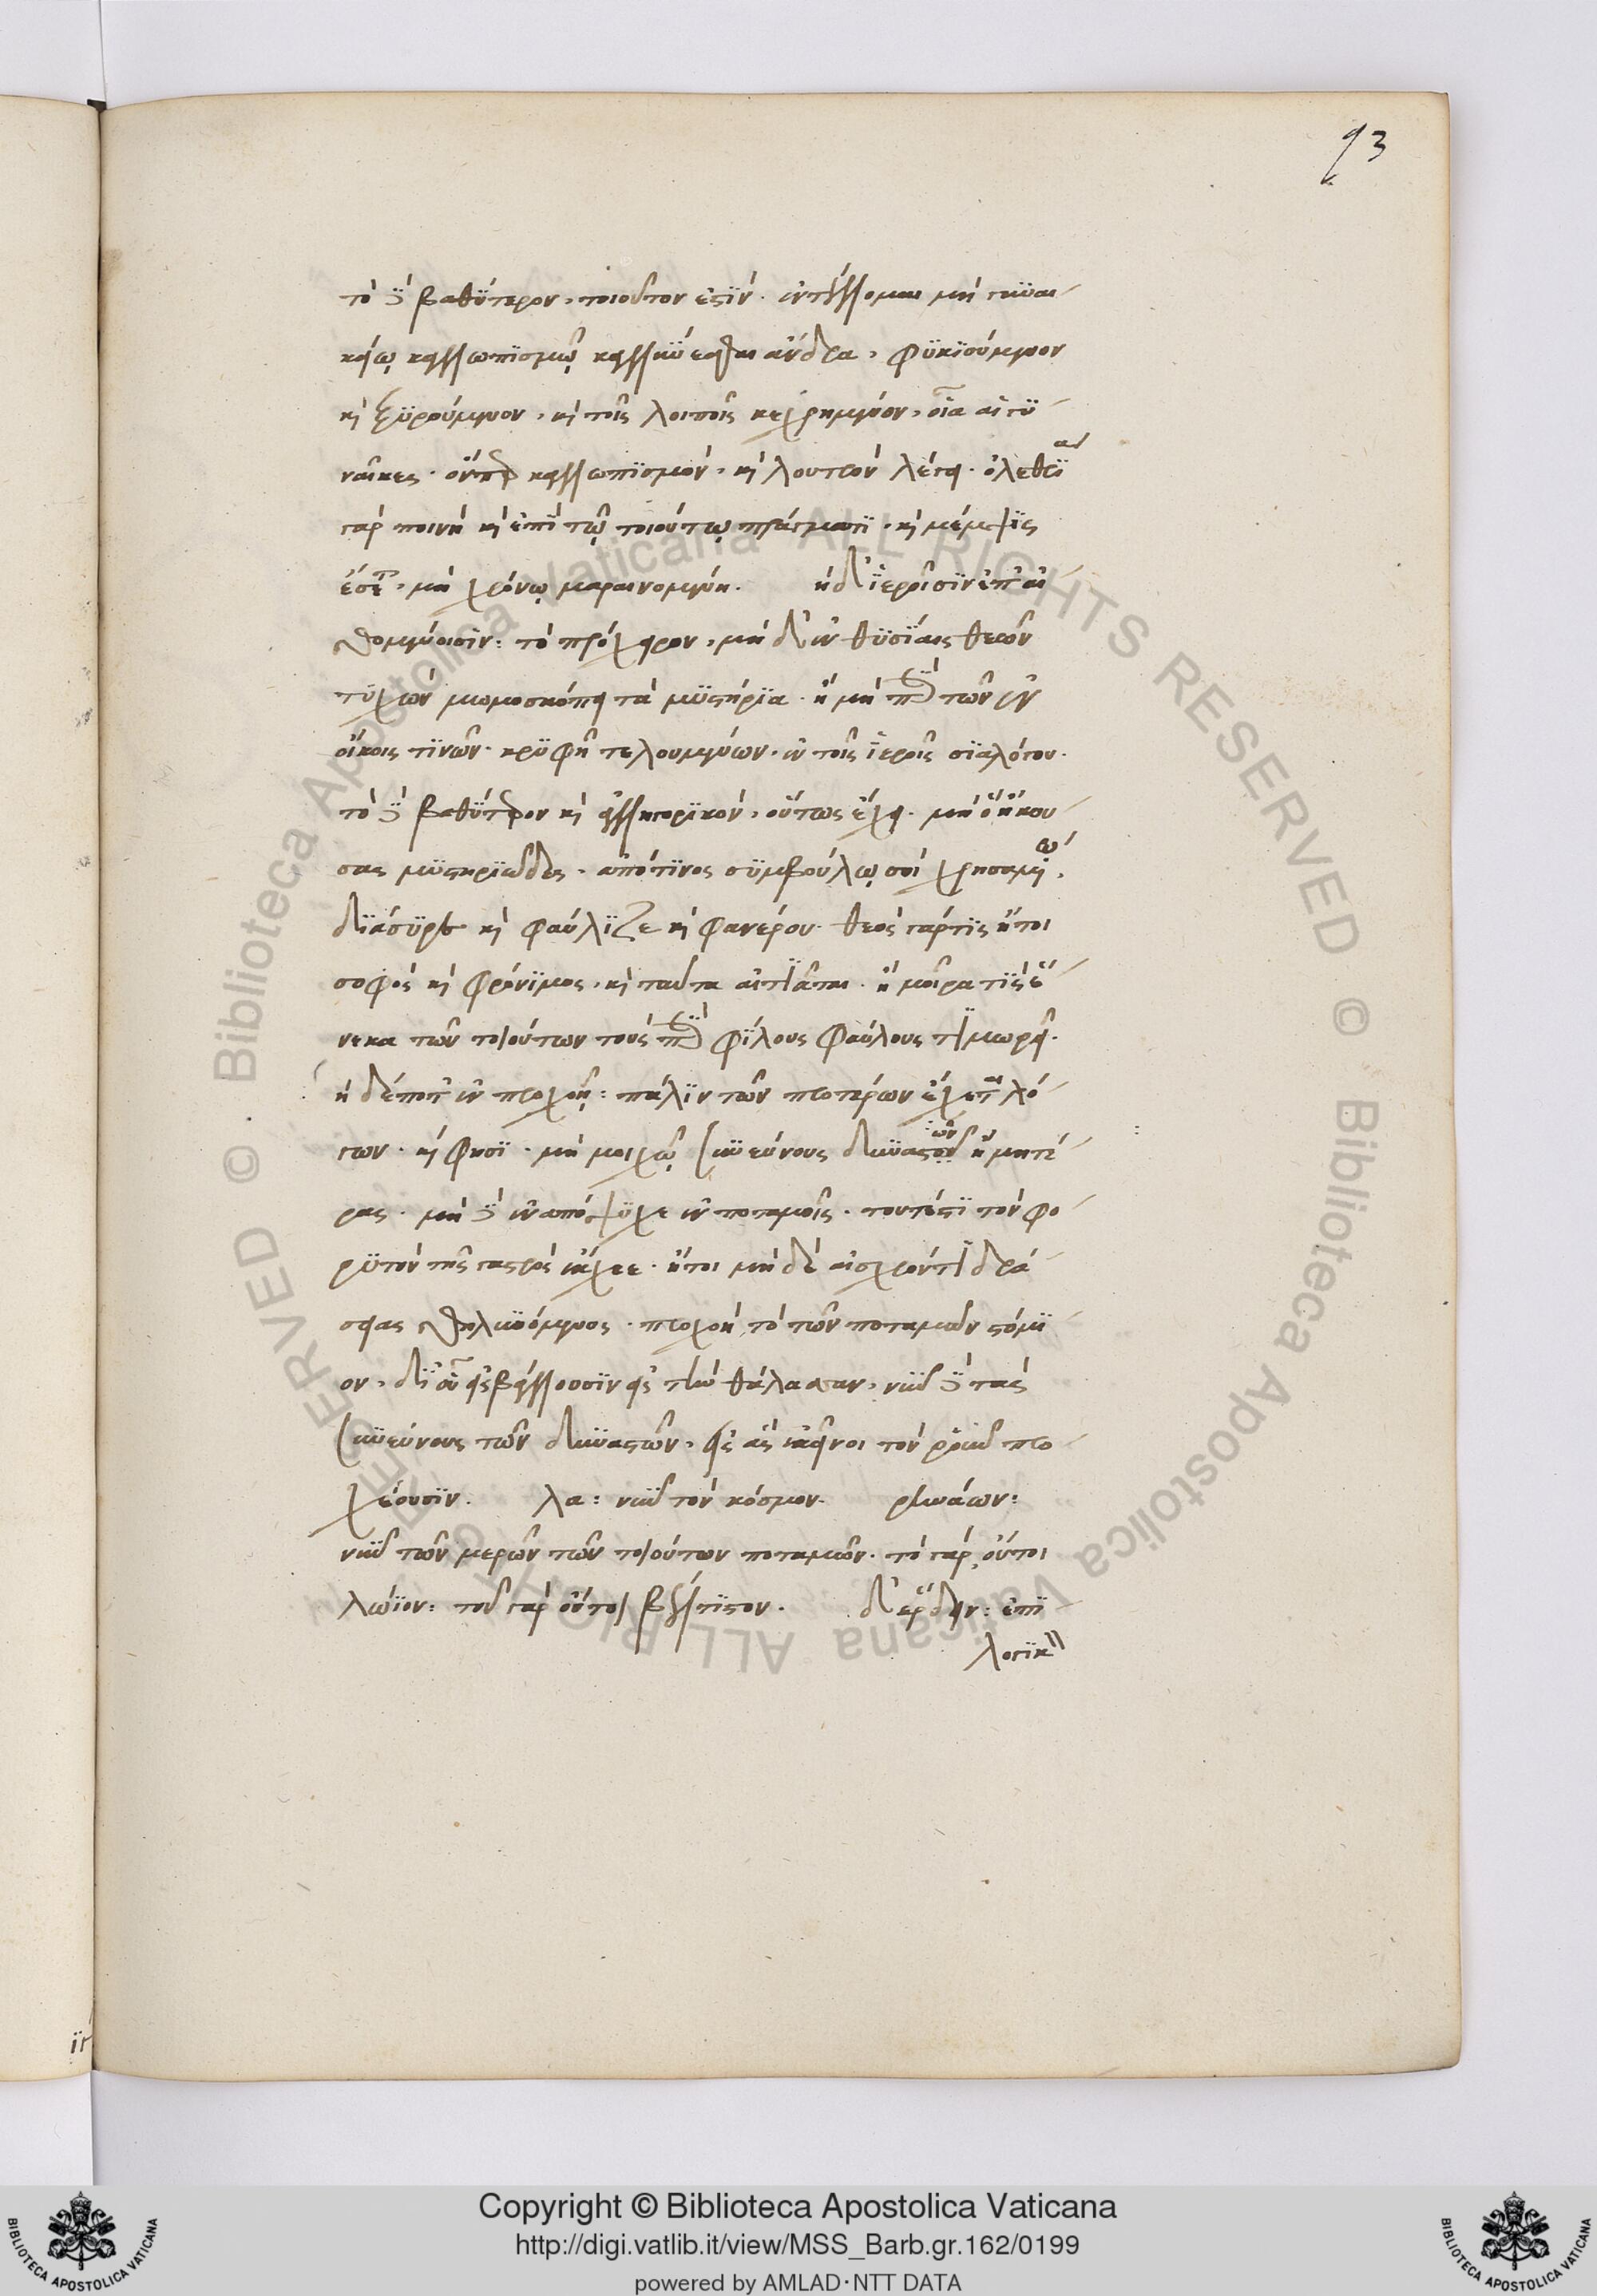 93
τὸ δὲ βαθύτερον, τοιοῦτον ἐστίν. ἐντέλλομαι μὴ γυναι
κείῳ καλλωπισμῷ καλλωπίζεσθαι ἄνδρα, φυκιούμενον
καὶ ξυρούμενον, καὶ τοῖς λοιποῖς κεχρημένον, οἷα αἱ γυ
ναῖκες. ὅνπερ καλλωπισμὸν, καὶ λουτρὸν λέγει. ὀλεθρία
γὰρ ποινὴ καὶ ἐπὶ τῷ τοιούτῳ πράγματι, καὶ μέμψις
ἔσται, μὴ χρόνῳ μαραινομένη. μηδ' ἱεροῖσιν ἐπ' αἰ
θομένοισιν: τὸ πρόχειρον, μὴ δ' ἐν θυσίαις θεῶν
τυχὼν μωμοσκόπει τὰ μυστήρια. ἢ μὴ περὶ τῶν ἐν
οἴκοις τινῶν κρυφῇ τελουμένων, ἐν τοῖς ἱεροῖς διαλέγου.
τὸ δὲ βαθύτερον καὶ ἀλληγορικὸν, οὕτως ἔχει. μὴ ὃ ἤκου
σας μυστηριῶδες, ἀπό τινος συμβούλῳ σοὶ χρησαμένω,
διάσυρε καὶ φαύλιζε καὶ φανέρου. θεὸς γάρ τις ἤτοι
σοφὸς καὶ φρόνιμος, καὶ ταῦτα αἰτιᾶται. ἢ μοῖρα τίς ἕ
νεκα τῶν τοιούτων τοὺς περὶ φίλους φαύλους τιμωρεῖ.
μηδέποτ' ἐν προχοῇ: πάλιν τῶν προτέρων ἔχεται λό
γων. καὶ φησὶ. μὴ μοιχῷ συνεύνους δυναστῶν ἢ μητέ
ρας. μὴ δὲ ἐναπόψυχε ἐν ποταμοῖς. τουτέστι τὸν φο
ρυτὸν τῆς γαστρὸς ἔκχεε. ἤτοι μὴ δὲ αἰσχρόν τι δρά
σειας θηλυνόμενος. προχοὴ, τὸ τῶν ποταμῶν στόμι
ον, δι' οὗ εἰσβάλλουσιν εἰς τὴν θάλασσαν, νῦν δὲ τὰς
συνεύνους τῶν δυναστῶν, εἰς ἃς ἐκεῖνοι τὸν ῥοῦν προ
χέουσιν. λα: νῦν τὸν κόσμον. κρηνάων:
νῦν τῶν μερῶν τῶν τοιούτων ποταμῶν. τὸ γὰρ οὔτοι
λώϊον: τοῦ γὰρ οὔτοι βέλτιστον. δ' ἔρδειν: ἐπὶ
λογικ
Copyright © Biblioteca Apostolica Vaticana
http://digi.vatlib.it/view/MSS_Barb.gr.162/0199
powered by AMLAD·NTT DATA